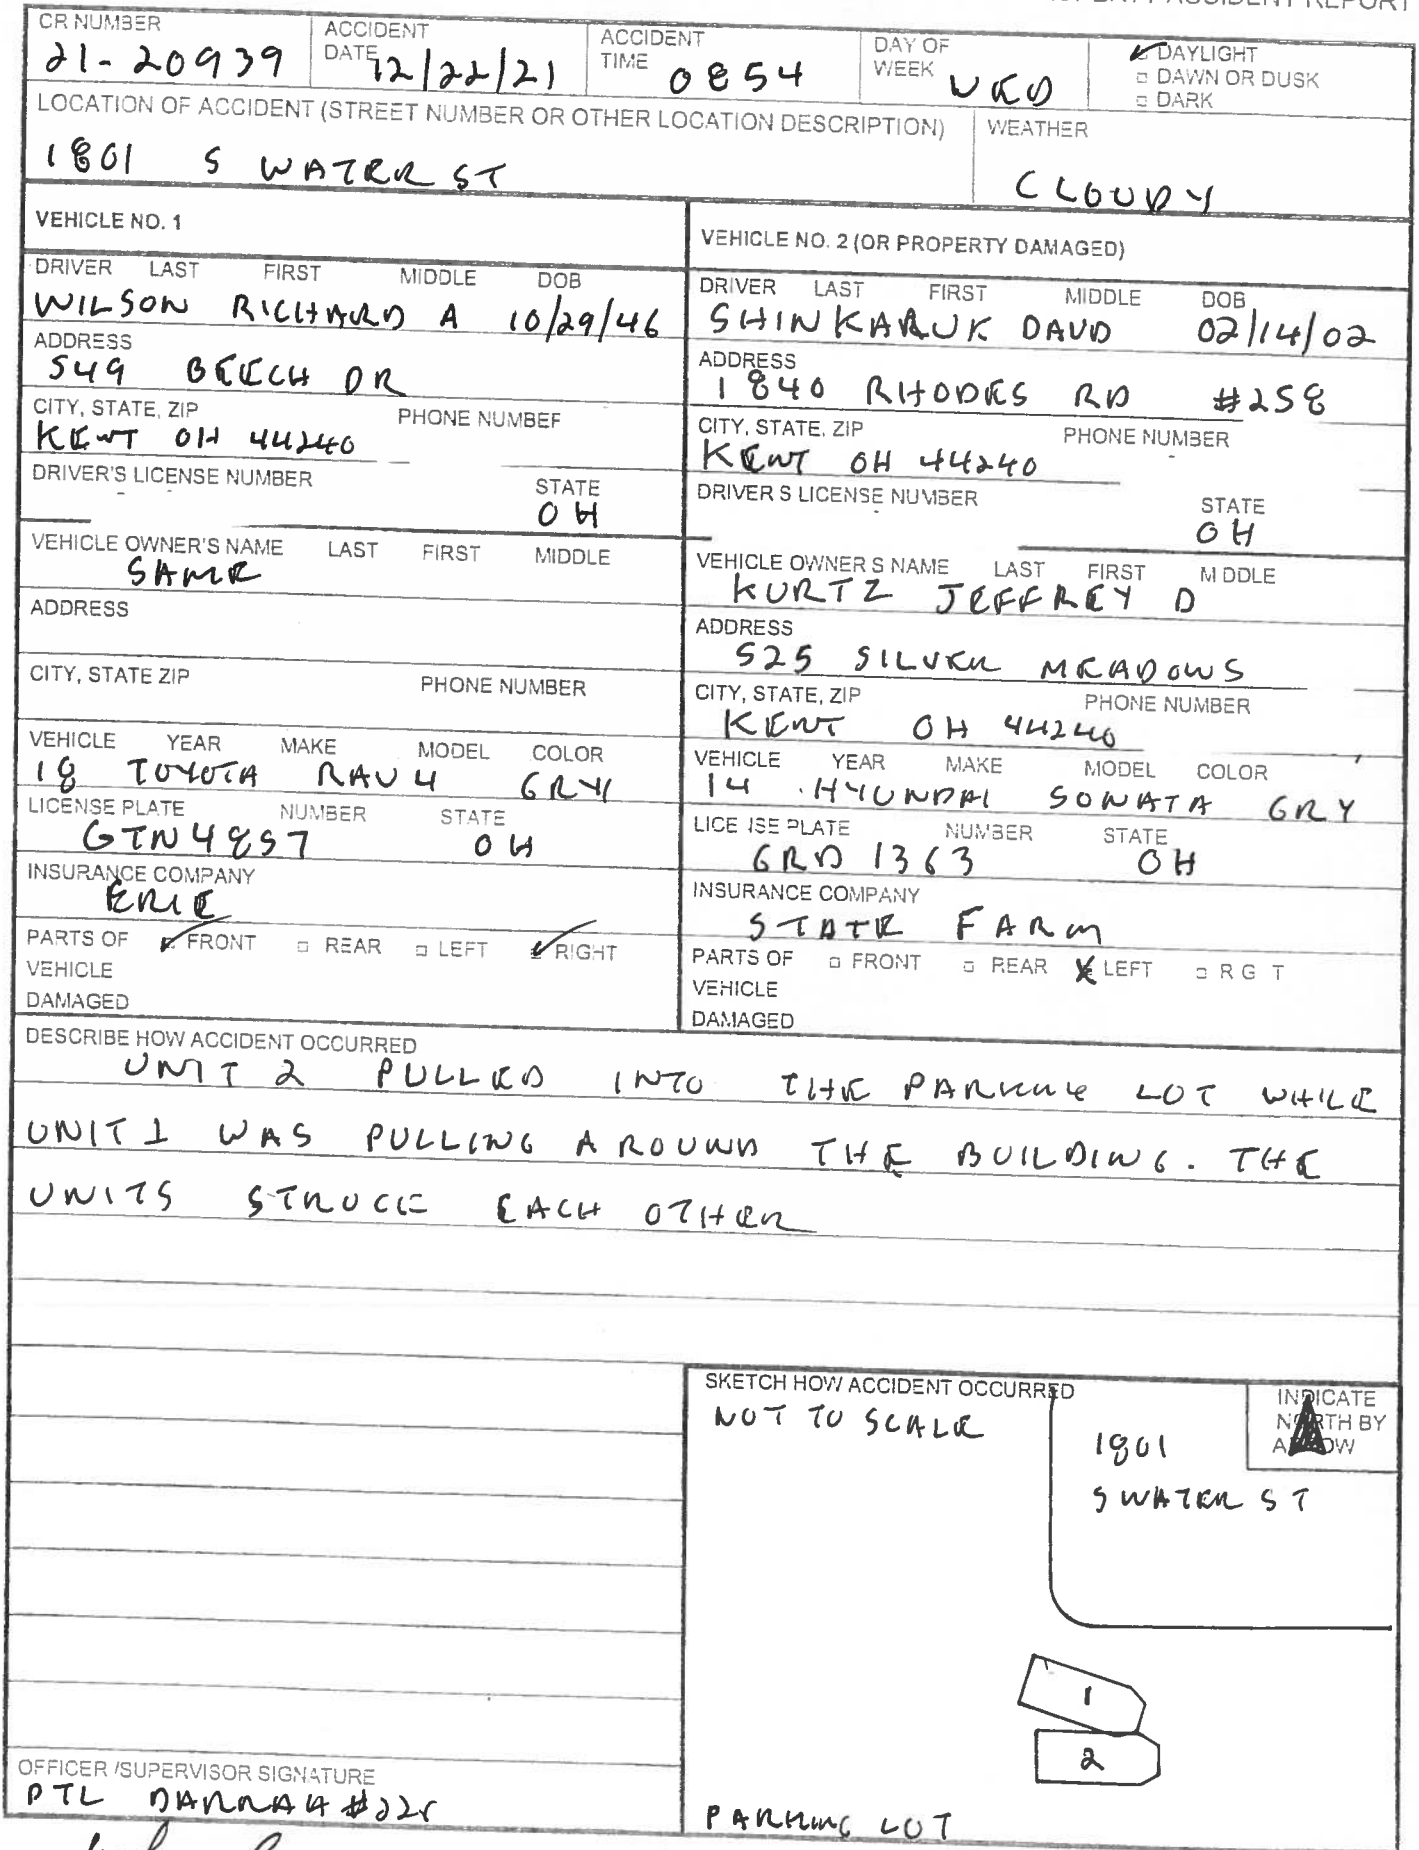 PERTY ACCIDENT REPORT
CR NUMBER ACCIDENT DATE ACCIDENT TIME DAY OF WEEK DAYLIGHT
21-20939 12/22/21 0854 WED DAWN OR DUSK
DARK
LOCATION OF ACCIDENT (STREET NUMBER OR OTHER LOCATION DESCRIPTION) WEATHER
1801 S WATER ST CLOUDY
VEHICLE NO. 1
VEHICLE NO. 2 (OR PROPERTY DAMAGED)
DRIVER LAST FIRST MIDDLE DOB
WILSON RICHARD A 10/29/46
ADDRESS
549 BEECH DR
CITY, STATE, ZIP PHONE NUMBER
KENT OH 44240
DRIVER'S LICENSE NUMBER STATE
OH
VEHICLE OWNER'S NAME LAST FIRST MIDDLE
SAME
ADDRESS
CITY, STATE ZIP PHONE NUMBER
VEHICLE YEAR MAKE MODEL COLOR
18 TOYOTA RAV4 GRY
LICENSE PLATE NUMBER STATE
GTN4857 OH
INSURANCE COMPANY
ERIE
PARTS OF FRONT REAR LEFT RIGHT
VEHICLE
DAMAGED
DRIVER LAST FIRST MIDDLE DOB
SHINKARUK DAVD 02/14/02
ADDRESS
1840 RHODES RD #258
CITY, STATE, ZIP PHONE NUMBER
KENT OH 44240
DRIVER S LICENSE NUMBER STATE
OH
VEHICLE OWNER S NAME LAST FIRST M DDLE
KURTZ JEFFREY D
ADDRESS
525 SILVER MEADOWS
CITY, STATE, ZIP PHONE NUMBER
KENT OH 44240
VEHICLE YEAR MAKE MODEL COLOR
14 HYUNDAI SONATA GRY
LICE ISE PLATE NUMBER STATE
GRD 1363 OH
INSURANCE COMPANY
STATE FARM
PARTS OF FRONT REAR LEFT R G T
VEHICLE
DAMAGED
DESCRIBE HOW ACCIDENT OCCURRED
UNIT 2 PULLED INTO THE PARKING LOT WHILE
UNIT 1 WAS PULLING AROUND THE BUILDING. THE
UNITS STRUCK EACH OTHER
SKETCH HOW ACCIDENT OCCURRED
NOT TO SCALE
INDICATE
NORTH BY
ARROW
1801
S WATER ST
1
2
PARKING LOT
OFFICER /SUPERVISOR SIGNATURE
PTL DARRAH